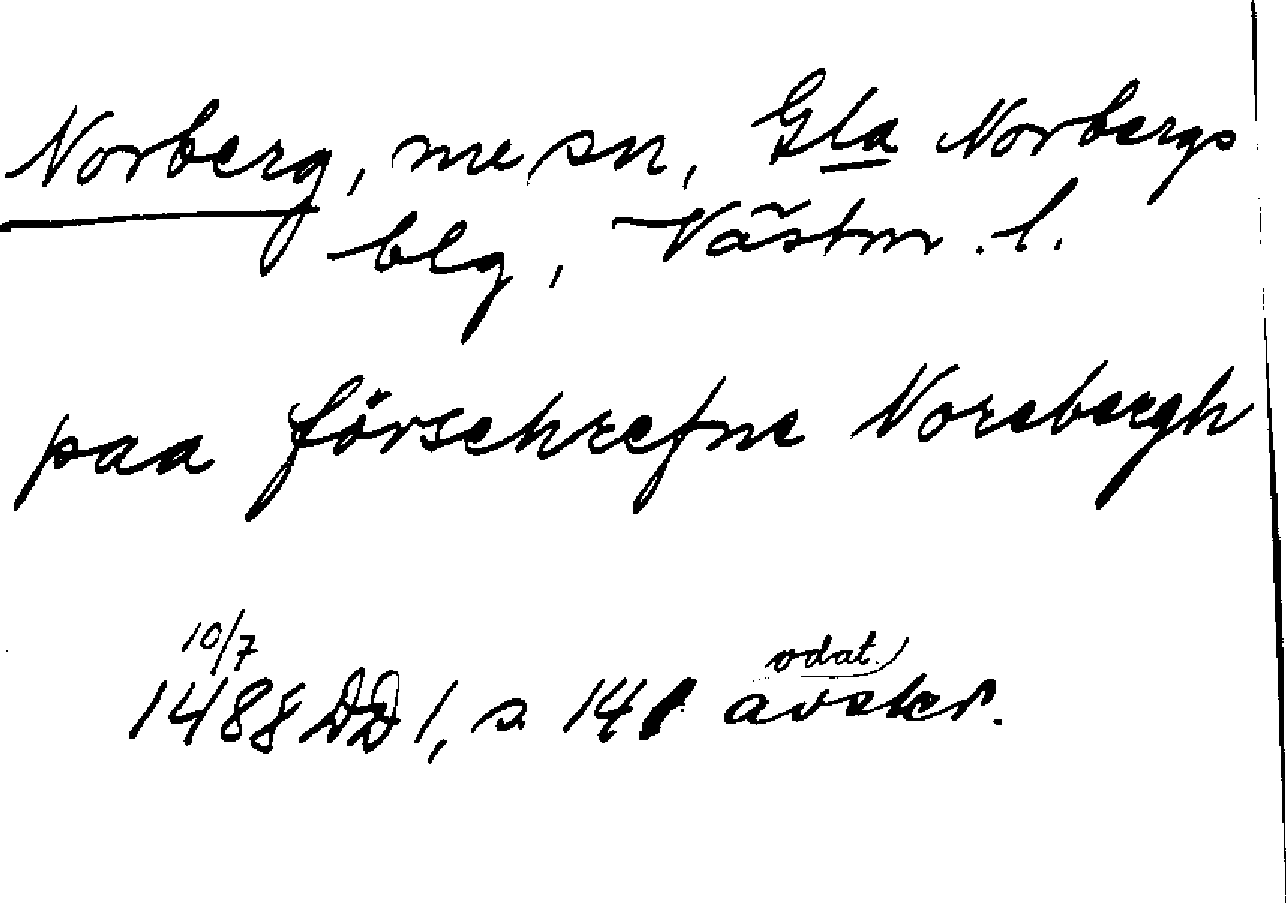 Norberg, me sn, Gla Norbergs
blg, Västm. l.
paa förschrefne Norebergh
10/7
1488 DD 1, s 141 odat. avskr.